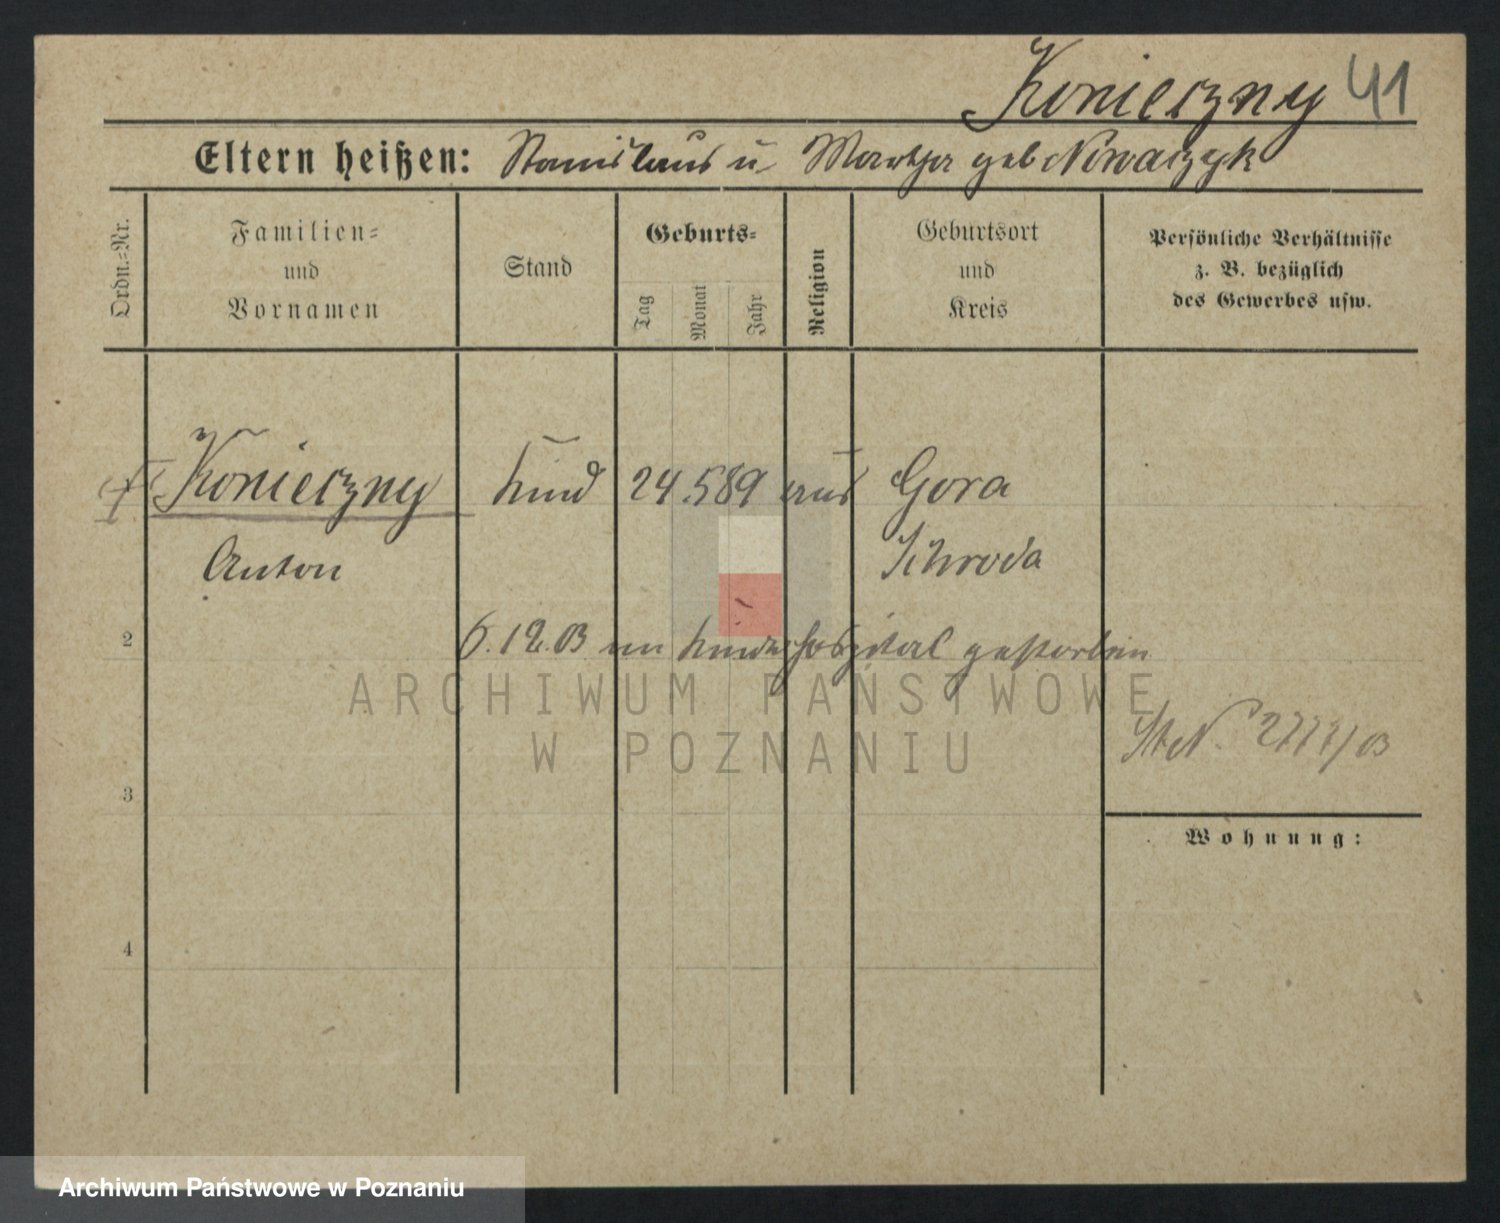 Konieczny 41
Eltern heißen: Stanislaus u Martha geb Nowaczyk
Ordn.-Nr.
Familien- und Vornamen
Stand
Geburts-
Tag
Monat
Jahr
Religion
Geburtsort und Kreis
Persönliche Verhältnisse
z. B. bezüglich
des Gewerbes usw.
Konieczny Kind 24.5 89 aus Gora
Anton Schroda
2
6.12.03 im Kinderhospital gestorben
ARCHIWUM PAŃSTWOWE
W POZNANIU
3
Wohnung:
4
Archiwum Państwowe w Poznaniu